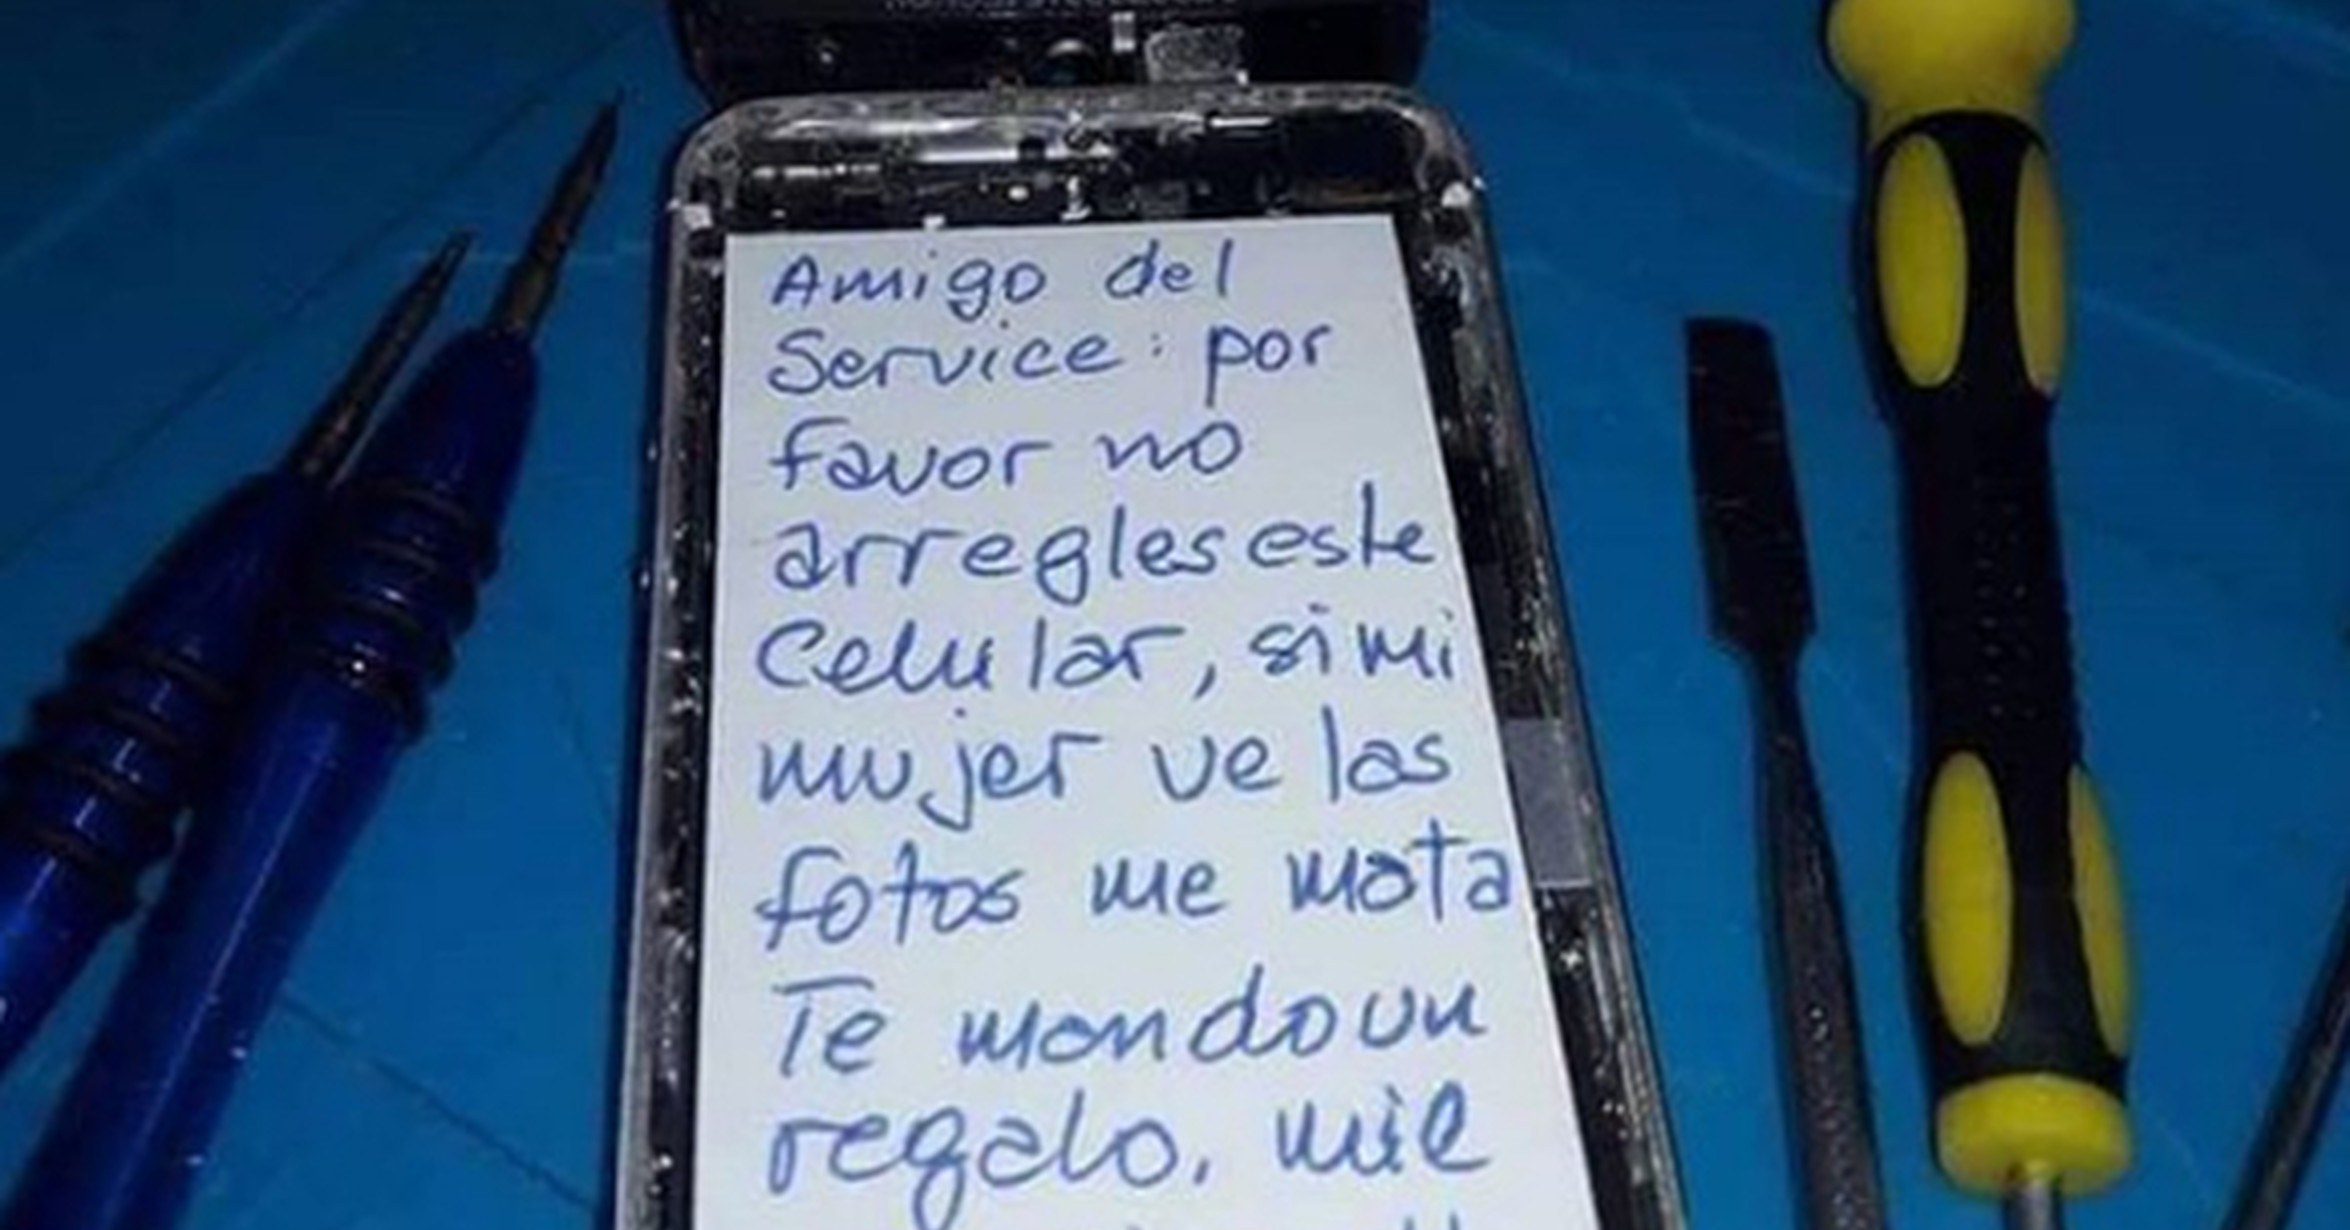 Amigo del
Service: por
favor no
arregles este
Celular, si mi
mujer ve las
fotos me mata
Te mando un
regalo, mil